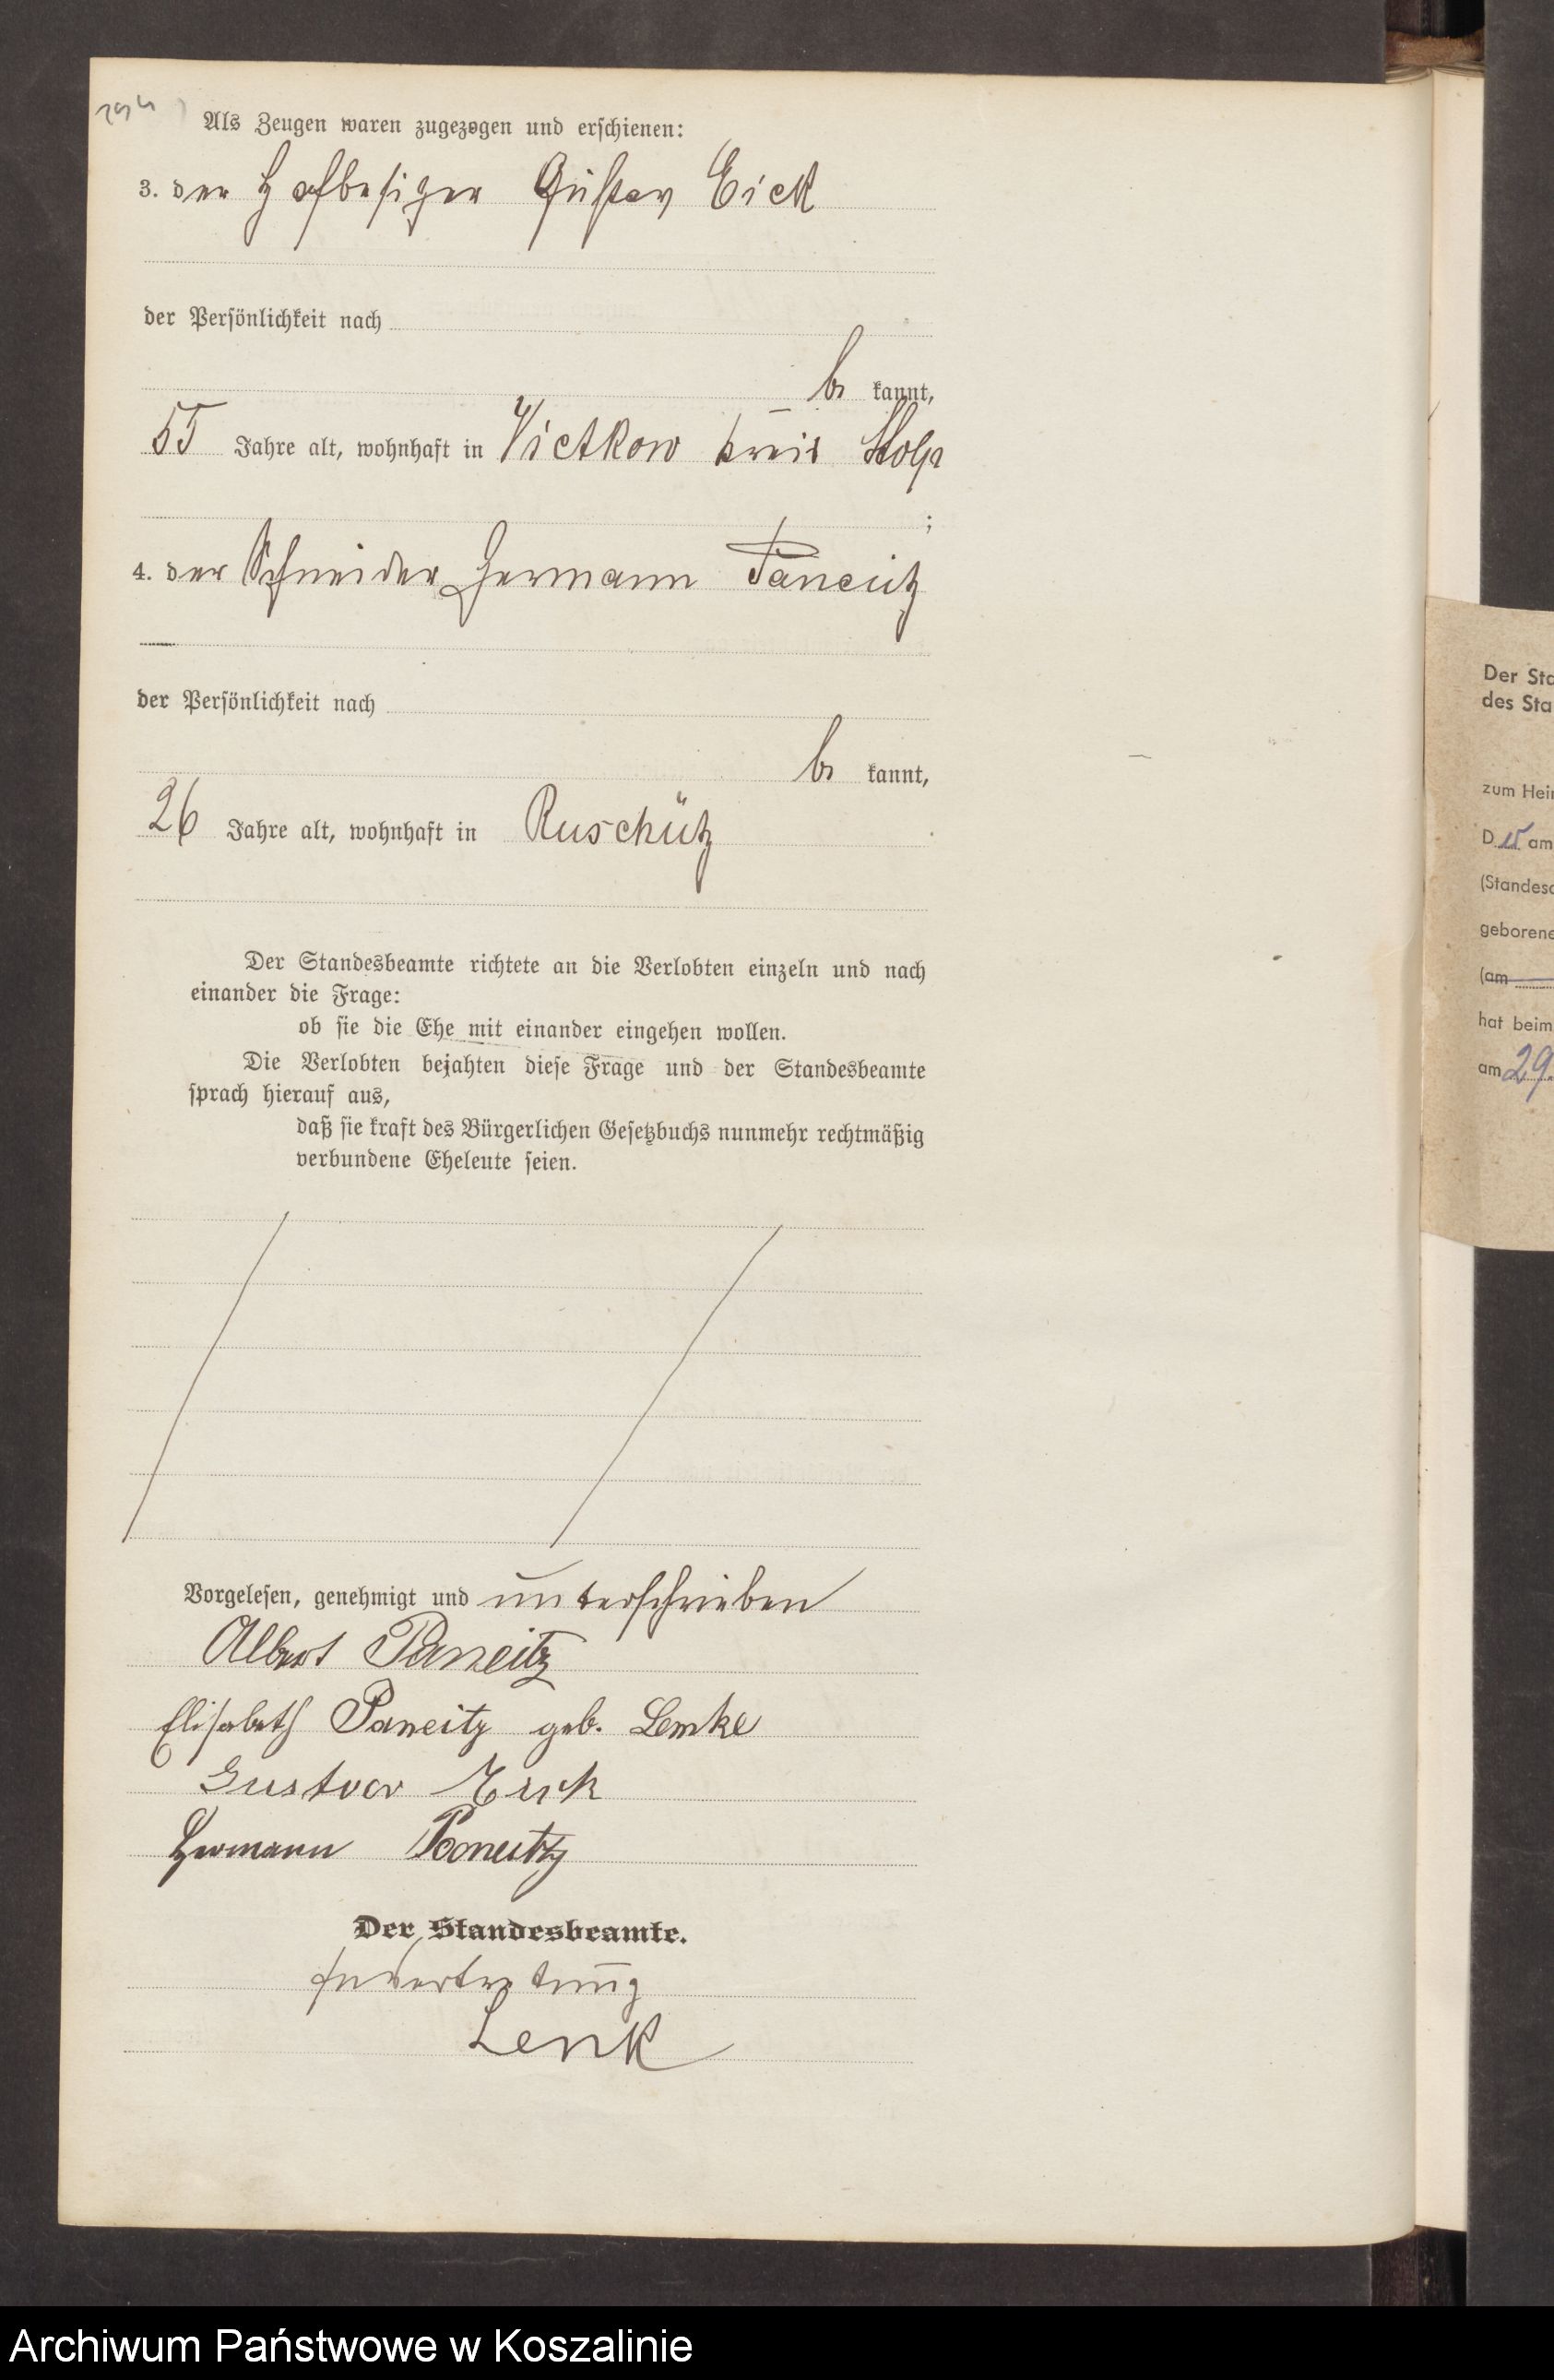 Als Zeugen waren zugezogen und erschienen:
3. der Hofbesitzer Gustav Eick
der Persönlichkeit nach
be kannt,
55 Jahre alt, wohnhaft in Vietkow Kreis Stolp
;
4. der Schneider Hermann Paneitz
der Persönlichkeit nach
be kannt,
26 Jahre alt, wohnhaft in Ruschütz
Der Standesbeamte richtete an die Verlobten einzeln und nach
einander die Frage:
ob sie die Ehe mit einander eingehen wollen.
Die Verlobten bejahten diese Frage und der Standesbeamte
sprach hierauf aus,
daß sie kraft des Bürgerlichen Gesetzbuchs nunmehr rechtmäßig
verbundene Eheleute seien.
Vorgelesen, genehmigt und unterschrieben
Albert Paneitz
Elisabeth Paneitz geb. Lemke
Gustav Eick
Hermann Paneitz
Der Standesbeamte.
In Vertretung
Lenk
Der Sta
des Sta
zum Hei
D am
(Standes
geborene
(am
hat beim
am 29.
Archiwum Państwowe w Koszalinie